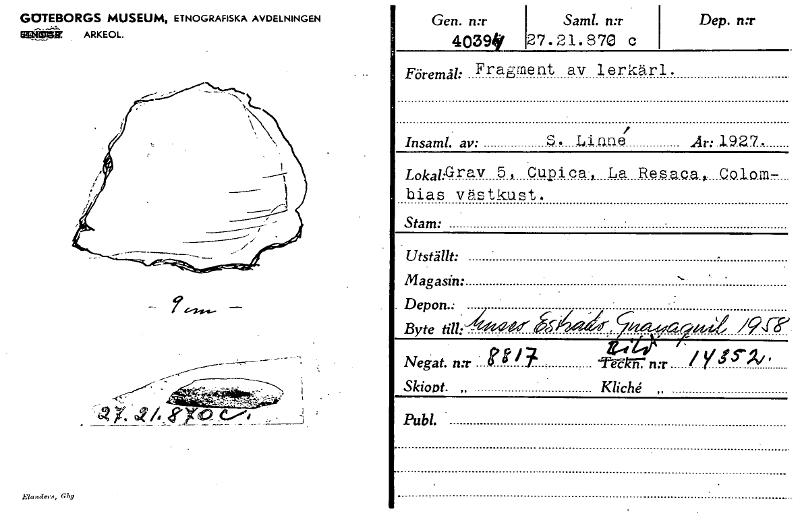 GÖTEBORGS MUSEUM, ETNOGRAFISKA AVDELNINGEN
ARKEOL.
- 9 cm -
27.21.870 c.
Elanders, Gbg
Gen. n:r Saml. n:r Dep. n:r
40394 27.21.870 c
Föremål: Fragment av lerkärl.
Insaml. av: S. Linné År: 1927.
Lokal: Grav 5, Cupica, La Resaca, Colom-
bias västkust.
Stam:
Utställt:
Magasin:
Depon.:
Byte till: Museo Estrado, Guayaquil 1958
Negat. n:r 8817 Bild Teckn. n:r 14352.
Skiopt. „ Kliché „
Publ.